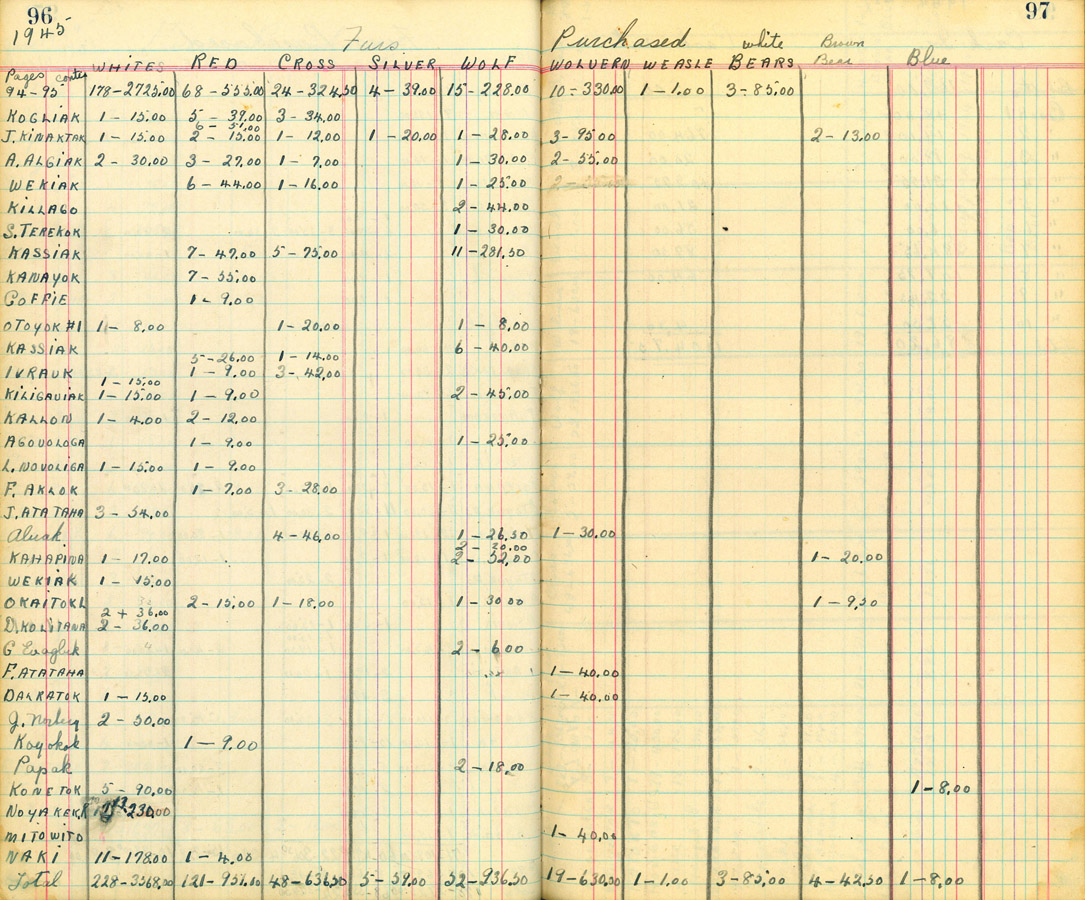 96 97
1945 Furs Purchased white Brown
WHITES RED CROSS SILVER WOLF WOLVERN WEASLE BEARS Bear Blue
Pages contd
94-95 178-2725.00 68-555.00 24-324.50 4-39.00 15-228.00 10-330.00 1-1.00 3-85.00
KOGLIAK 1-15.00 5-39.00 3-34.00
6-51.00
J. KINAKTAK 1-15.00 2-15.00 1-12.00 1-20.00 1-28.00 3-95.00 2-13.00
A. ALGIAK 2-30.00 3-27.00 1-7.00 1-30.00 2-55.00
WEKIAK 6-44.00 1-16.00 1-25.00
KILLAGO 2-44.00
S. TEREKOK 1-30.00
KASSIAK 7-47.00 5-75.00 11-281.50
KANAYOK 7-55.00
GOFFIE 1-9.00
OTOYOK #1 1-8.00 1-20.00 1-8.00
KASSIAK 5-26.00 1-14.00 6-40.00
IVRAUK 1-9.00 3-42.00
1-15.00
KILIGAUIAK 1-15.00 1-9.00 2-45.00
KALLON 1-4.00 2-12.00
AGOVOLOGA 1-9.00 1-25.00
L. NOVOLIGA 1-15.00 1-9.00
F. AKLOK 1-7.00 3-28.00
J. ATATAHA 3-54.00
Aluak 4-46.00 1-26.50 1-30.00
2-20.00
KAHAPINA 1-17.00 2-52.00 1-20.00
WEKIAK 1-15.00
OKAITOKL 2-15.00 1-18.00 1-30.00 1-9.50
2+36.00
D. KOLITANA 2-36.00
G 2-6.00
F. ATATAHA 1-40.00
DALRATOK 1-15.00 1-40.00
J. 2-50.00
Koyokok 1-9.00
Papak 2-18.00
KONETOK 5-90.00 1-8.00
NOYAKEK 230.00
MITOWITO 1-40.00
NAKI 11-178.00 1-4.00
Total 228-3568.00 121-951.10 48-636.50 5-59.00 52-936.50 19-630.50 1-1.00 3-85.00 4-42.50 1-8.00